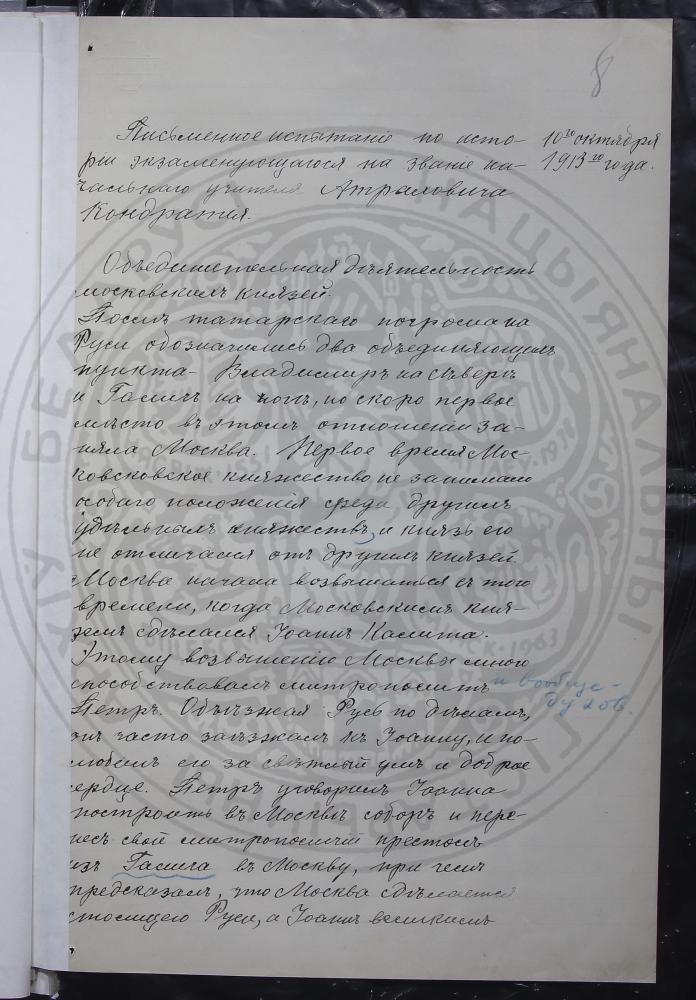 8
Письменное испытаніе по исто-
ріи экзаменующагося на званіе на-
чальнаго учителя Атраховича
Кондратія.
10го октября
1913го года.
Объединительная дѣятельность
московскихъ князей.
Послѣ татарскаго погрома на
Руси обозначились два объединяющихъ
пункта – Владимиръ на сѣверѣ
и Галичъ на югѣ, но скоро первое
мѣсто въ этомъ отношеніи за-
няла Москва. Первое время Мос-
ковсковское княжество не занимало
особаго положенія среди другихъ
удѣльныхъ княжествъ, и князь его
не отличался отъ другихъ князей.
Москва начала возвышаться съ того
времени, когда Московскимъ кня-
земъ сдѣлался Іоаннъ Калита.
Этому возвышенію Москвы много
способствовалъ митрополитъ
и вообще –
духов.
Петръ. Объѣзжая Русь по дѣламъ,
онъ часто заѣзжалъ къ Іоанну, и по-
любилъ его за свѣтлый умъ и доброе
сердце. Петръ уговорилъ Іоанна
построить въ Москвѣ соборъ и пере-
несъ свой митрополичій престолъ
изъ Галича въ Москву, при чемъ
предсказалъ, что Москва сдѣлается
столицею Руси, а Іоаннъ великимъ